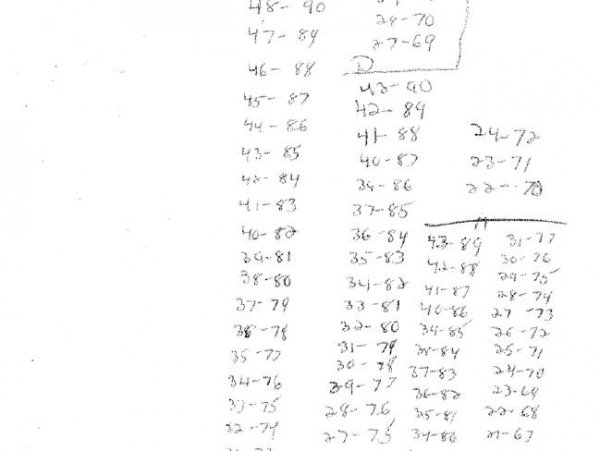 48-90
47-89
46-88
45-87
44-86
43-85
42-84
41-83
40-82
39-81
38-80
37-79
36-78
35-77
34-76
33-75
32-74
28-70
27-69
D
43-90
42-89
41-88
40-87
39-86
37-85
36-84
35-83
34-82
33-81
32-80
31-79
30-78
29-77
28-76
27-75
24-72
23-71
22-70
43-89
42-88
41-87
40-86
39-85
38-84
37-83
36-82
35-81
34-80
31-77
30-76
29-75
28-74
27-73
26-72
25-71
24-70
23-69
22-68
21-67